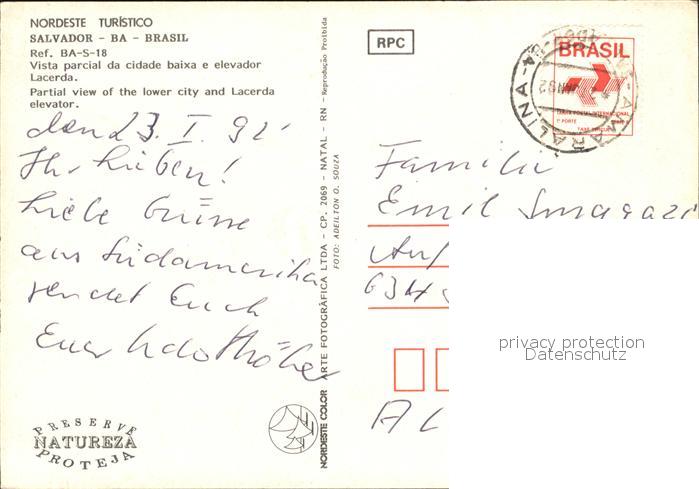 NORDESTE TURÍSTICO
SALVADOR - BA - BRASIL
Ref. BA-S-18
Vista parcial da cidade baixa e elevador
Lacerda.
Partial view of the lower city and Lacerda
elevator.
den 23. I. 92
Ihr Lieben!
Liebe Grüsse
aus Südamerika
sendet Euch
Euer
PRESERVE
NATUREZA
PROTEJA
NORDESTE COLOR ARTE FOTOGRÁFICA LTDA - CP. 2069 - NATAL - RN - Reprodução Proibida
FOTO: ADEILTON O. SOUZA
RPC
BRASIL
TARIFA POSTAL INTERNACIONAL
1º PORTE
AMARALINA
Familie
Emil
privacy protection
Datenschutz